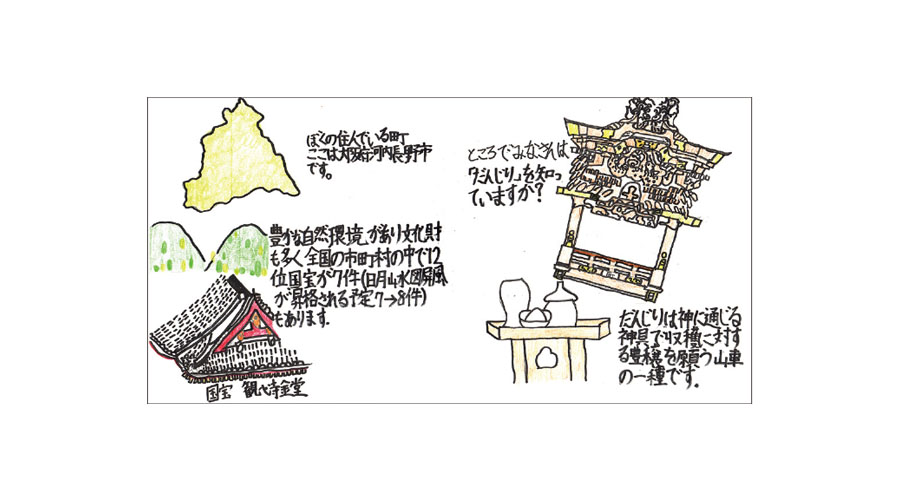 ぼくの住んでいる町
ここは大阪府河内長野市
です。
豊かな自然環境があり文化財
も多く全国の市町村の中で12
位国宝が7件(日月山水図屏風
が昇格される予定7→8件)
もあります.
国宝 観心寺金堂
ところでみなさんは
「だんじり」を知っ
ていますか?
だんじりは神に通じる
神具で収穫に対す
る豊穣を願う山車
の一種です.